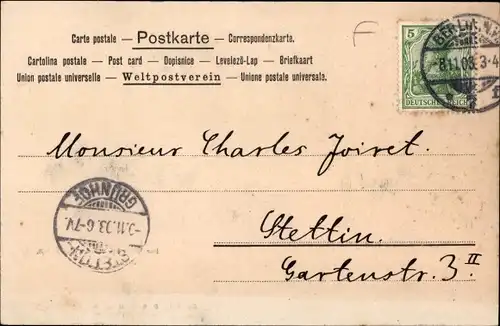 Carte postale — Postkarte — Correspondenzkarte.
Cartolina postale — Post card — Dopisnice — Levelező-Lap — Briefkaart
Union postale universelle — Weltpostverein — Unione postale universale.
F
5
DEUTSCHES REICH
BERLIN N.
8.11.03. 3-4
Monsieur Charles Joiret.
Stettin.
Gartenstr. 3 II
STETTIN
-9.11.03. 6-7V.
GRÜNHOF